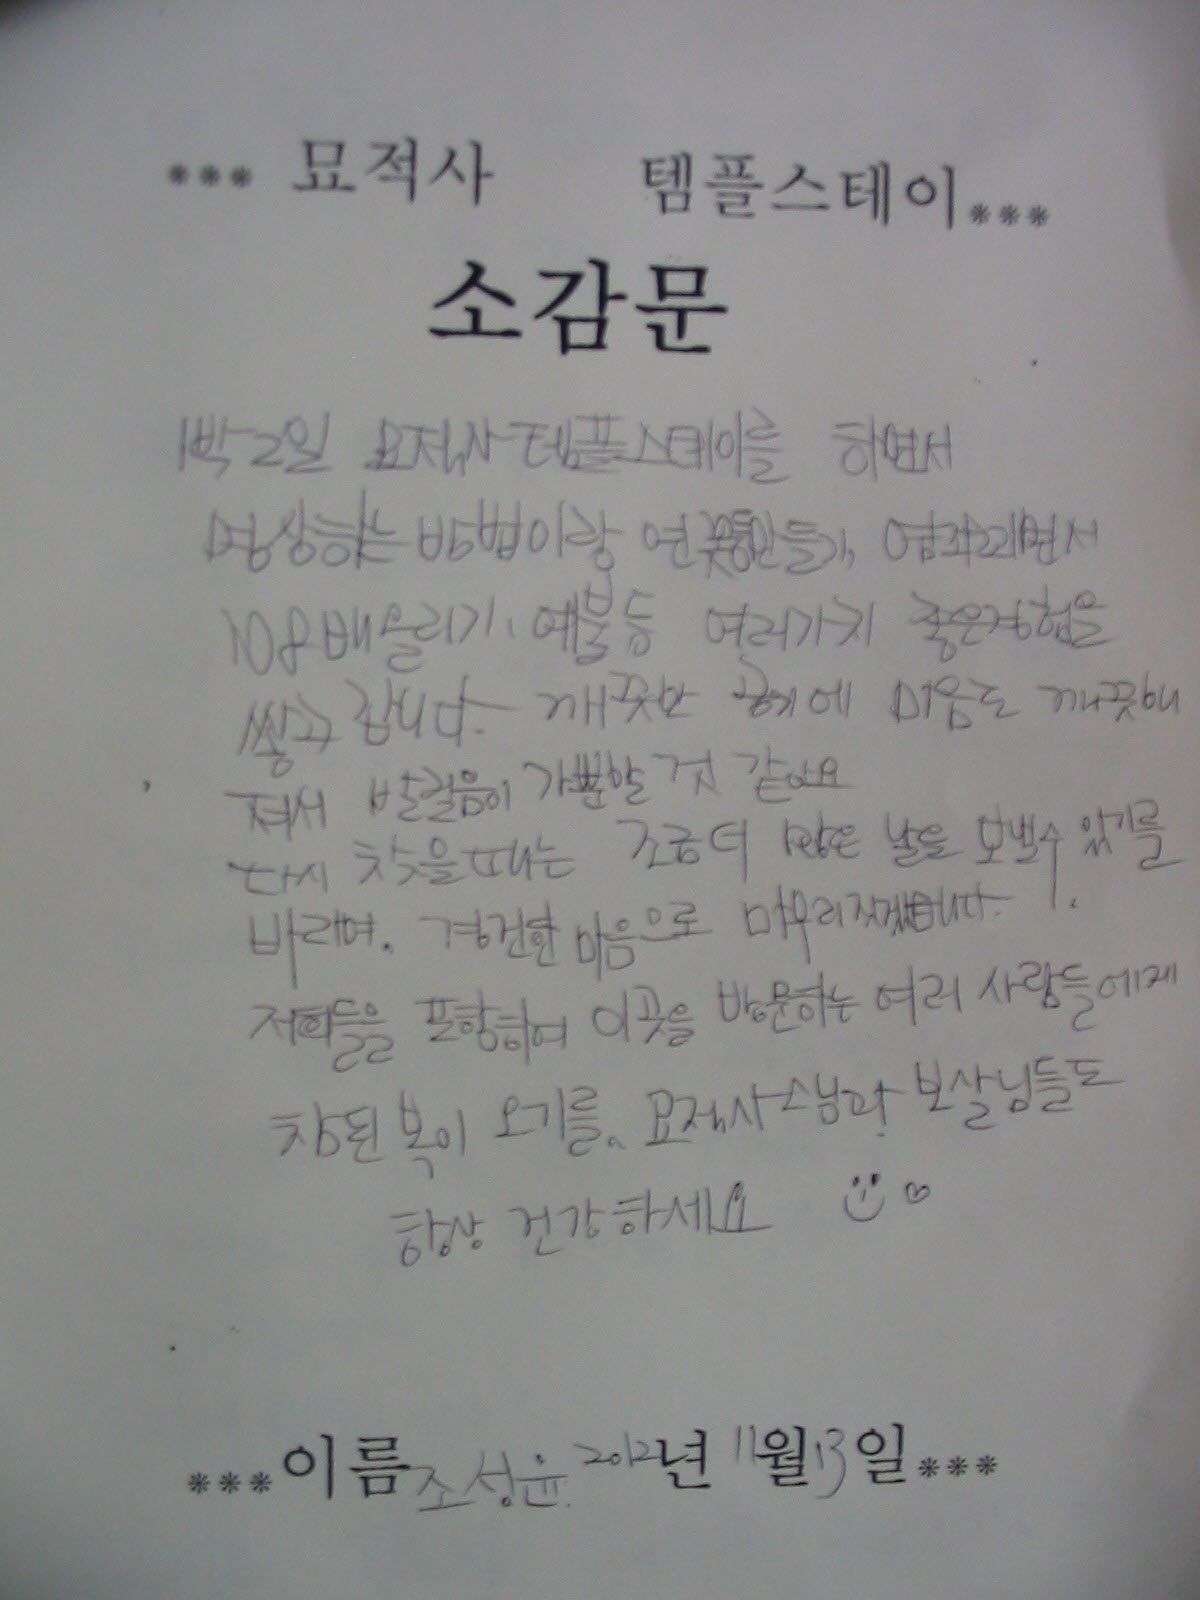 *** 묘적사 템플스테이 ***
소감문
1박2일 묘적사 템플스테이를 하면서
명상하는 방법이랑 연꽃등만들기, 염주꿰면서
108배 올리기, 예불등 여러가지 좋은경험을
쌓고 갑니다. 깨끗한 공기에 마음도 깨끗해
져서 발걸음이 가뿐할 것 같아요
다시 찾을때는 조금더 많은 날을 보낼수 있기를
바라며. 경건한 마음으로 마무리 짓겠습니다.
저희들을 포함하여 이곳을 방문하는 여러 사람들에게
참된 복이 오기를. 묘적사 스님과 보살님들도
항상 건강하세요
*** 이름 조성윤 2012년 11월 13일 ***